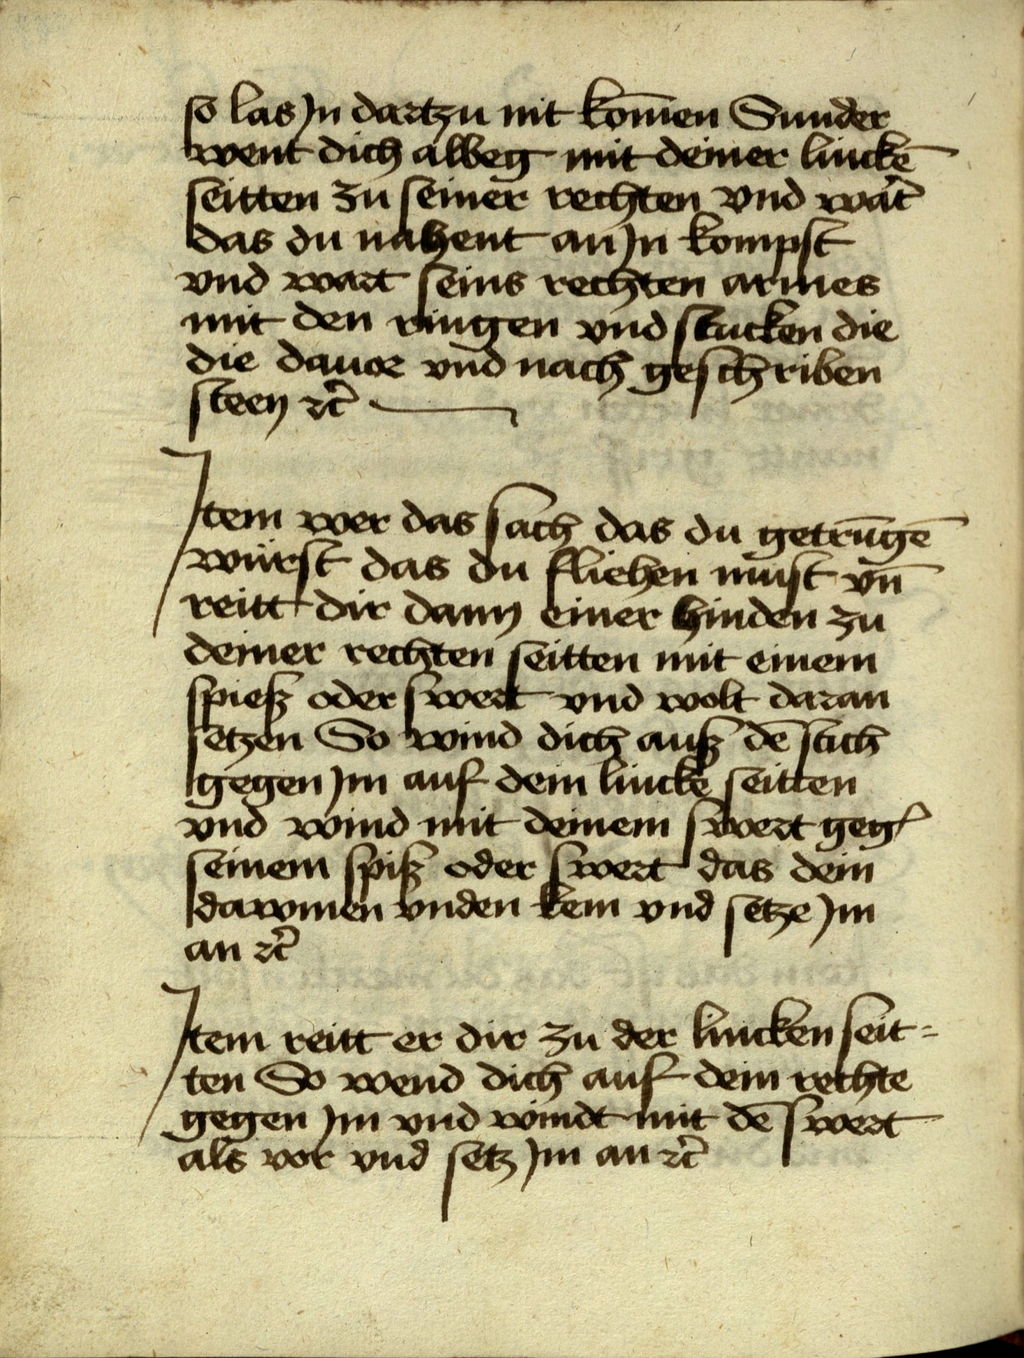 so las Jn dartzu nit kom̄en Sunder
went dich albeg mit deiner lincke̅
seitten zu seiner rechten vnd wart
das du nahent an Jn kompst
vnd wart seins rechten armes
mit den ringen vnd stucken die
die dauor vnd nach geschriben
steen ⁊c̃
Jtem wer das sach das du getru̅ge̅
würst das du fliehen must vn̅
reitt dir dann einer hinden zu
deiner rechten seitten mit einem
spieß oder swert vnd wolt daran
setzen So wind dich auß de̅ stich
gegen Jm auf dein lincke seitten
vnd wind mit deinem swert geg̃
seinem spiß oder swert das dein
dawmen vnden kem vnd setze Jm
an ⁊c̃
Jtem reitt er dir zu der lincken seit=
ten So wend dich auf dein rechte
gegen Jm vnd windt mit de̅ swert
als vor vnd setz Jm an ⁊c̃